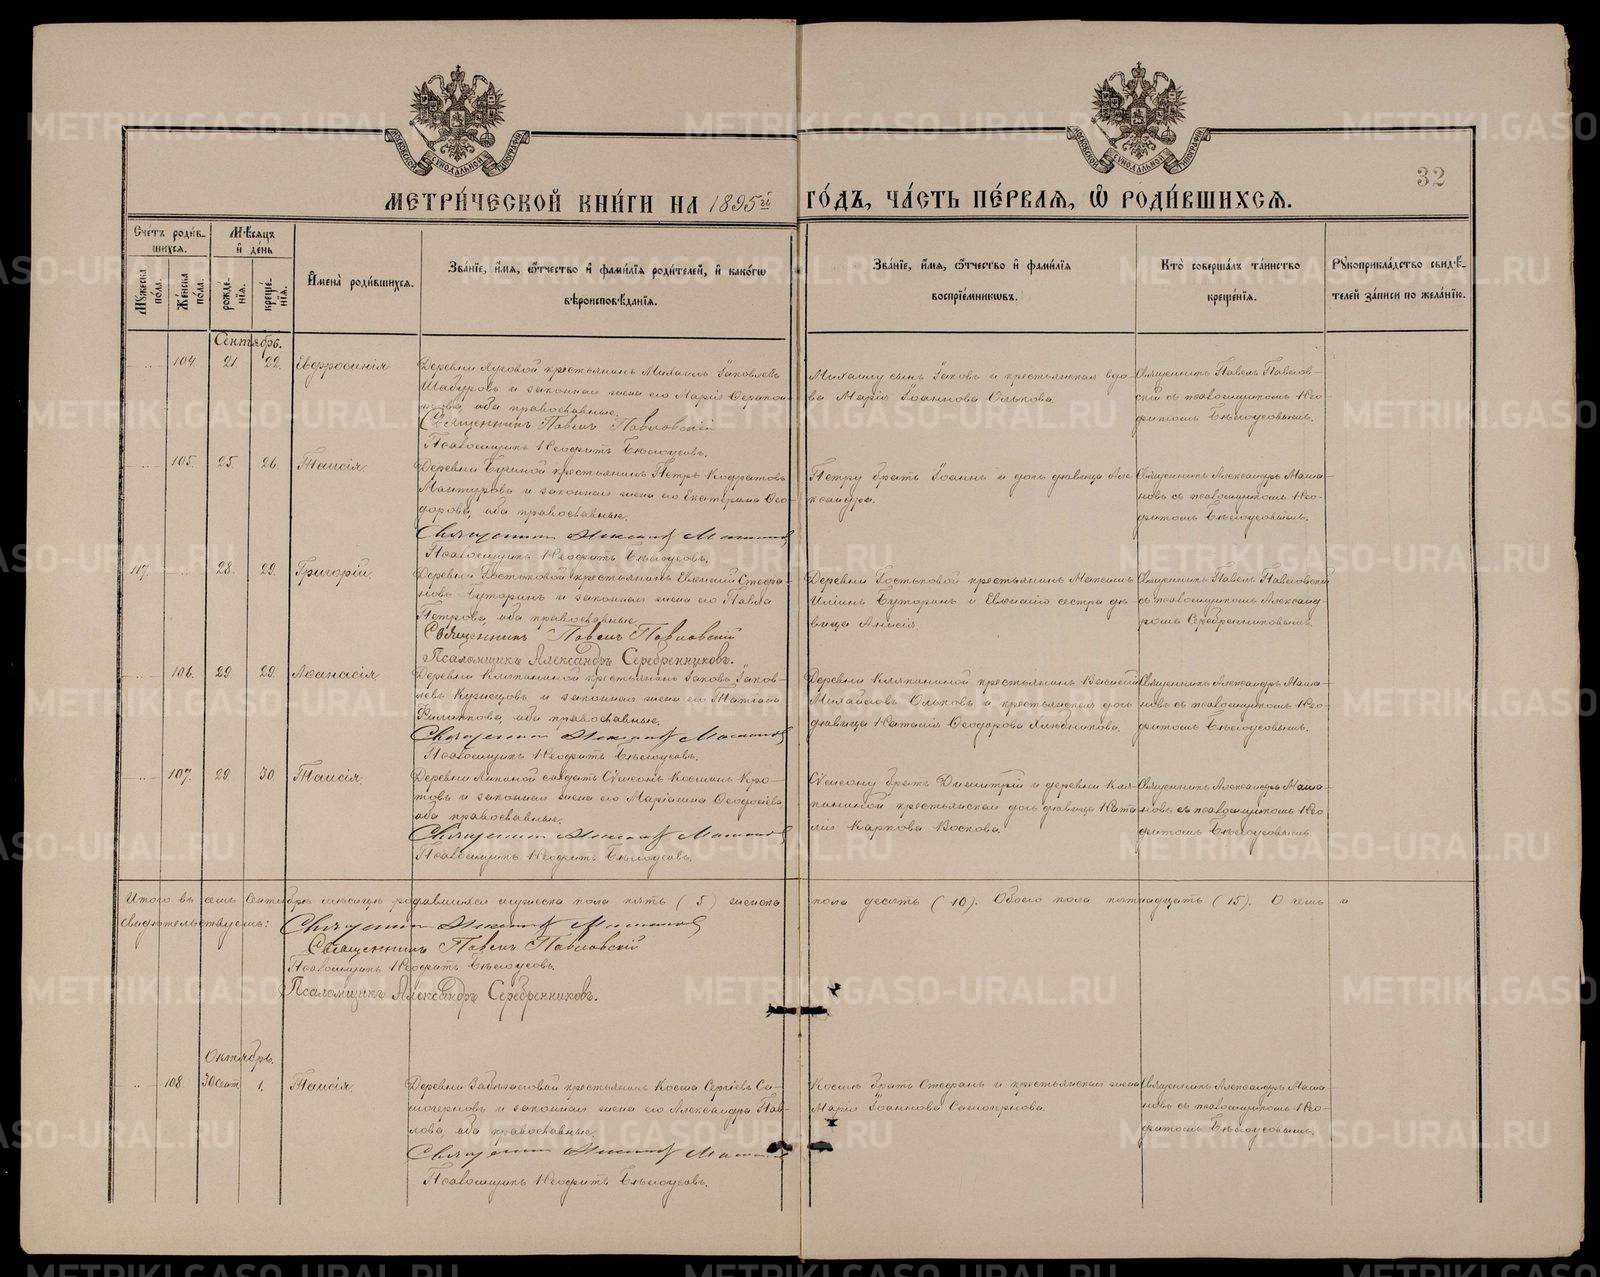 32
МЕТРИ́ЧЕСКОЙ КНИ́ГИ НА 1895й ГО́ДЪ, ЧА́СТЬ ПЕ́РВАЯ, Ѡ҆ РОДИ́ВШИХСЯ.
Сче́тъ роди́в-
шихся.
Му́жеска пола.
Же́нска по́ла.
Мѣ́сяцъ
и҆ де́нь
рожде́-
нїя.
креще́-
нїя.
И҆мена̀ роди́вшихся.
Зва́нїе, и҆́мя, ѻ҆́тчество и҆ фами́лїя роди́телей, и҆ како́гѡ
вѣроисповѣ́данїя.
Зва́нїе, и҆́мя, ѻ҆́тчество и҆ фами́лїя
воспрїе́мниковъ.
Кто̀ соверша́лъ та́инство
креще́нїя.
Рꙋкоприкла́дство свидѣ́-
телей за́писи по жела́нїю.
Сентябрь.
104. 21. 22. Евфросинія
Деревни крестьянинъ Михаилъ Іаковлевъ
Шабуровъ и законная жена его Марія
оба православные.
Священникъ Павелъ Павловскій
Псаломщикъ Неофитъ Бѣлоусовъ.
Михаилу сынъ Іаковъ и крестьянская вдо-
ва Марія Іоаннова Олькова.
Священникъ Павелъ Павлов-
скій съ псаломщикомъ Нео-
фитомъ Бѣлоусовымъ.
105. 25. 26. Таисія.
Деревни крестьянинъ Петръ Кодратовъ
Мантурова и законная жена его Екатерина Ѳео-
дорова, оба православные.
Священникъ Александръ
Псаломщикъ Неофитъ Бѣлоусовъ.
Петру братъ Іоаннъ и дочь дѣвица Але-
ксандра.
Священникъ Александръ
новъ съ псаломщикомъ Нео-
фитомъ Бѣлоусовымъ.
117. 28. 29. Григорій.
Деревни Гостьковой крестьянинъ Евгеній Стефа-
новъ Буторинъ и законная жена его Павла
Петрова, оба православные.
Священникъ Павелъ Павловскій
Псаломщикъ Александръ Серебренниковъ.
Деревни Гостьковой крестьянинъ
Буторинъ и Евгенія сестра дѣ-
вица Анисія.
Священникъ Павелъ Павловскій
съ псаломщикомъ Александ-
ромъ Серебренниковымъ.
106. 29. 29. Аѳанасія
Деревни Кляпининой крестьянинъ Іаковъ Іаков-
левъ Кузнецовъ и законная жена его Татіана
Филиппова, оба православные.
Священникъ Александръ
Псаломщикъ Неофитъ Бѣлоусовъ.
Деревни Кляпининой крестьянинъ Василій
Михайловъ Ольковъ и крестьянская дочь
дѣвица Наталія Ѳеодорова Хлѣбникова.
Священникъ Александръ
новъ съ псаломщикомъ Нео-
фитомъ Бѣлоусовымъ.
107. 29 30. Таисія.
Деревни Липиной солдатъ Сѵмеонъ Косминъ Кро-
товъ и законная жена его Маріанна Ѳеодосіева,
оба православные.
Священникъ Александръ
Псаломщикъ Неофитъ Бѣлоусовъ.
Сѵмеону братъ Димитрій и деревни Кля-
пининой крестьянская дочь дѣвица Ната-
лія Карпова Воскова.
Священникъ Александръ
новъ съ псаломщикомъ Нео-
фитомъ Бѣлоусовымъ.
Итого въ семъ Сентябрѣ мѣсяцѣ родившихся мужеска пола пять (5) женска пола десять (10). Обоего пола пятнадцать (15). О чемъ и
свидѣтельствуемъ: Священникъ Александръ
Священникъ Павелъ Павловскій
Псаломщикъ Неофитъ Бѣлоусовъ.
Псаломщикъ Александръ Серебренниковъ.
Октябрь.
108. 30 Сент. 1. Таисія.
Деревни крестьянинъ Косма Сергіевъ Са-
мочерновъ и законная жена его Александра Пав-
лова, оба православные.
Священникъ Александръ
Псаломщикъ Неофитъ Бѣлоусовъ.
Космы братъ Стефанъ и крестьянская жена
Марія Іоаннова Самочернова.
Священникъ Александръ
новъ съ псаломщикомъ Нео-
фитомъ Бѣлоусовымъ.
METRIKI.GASO-URAL.RU